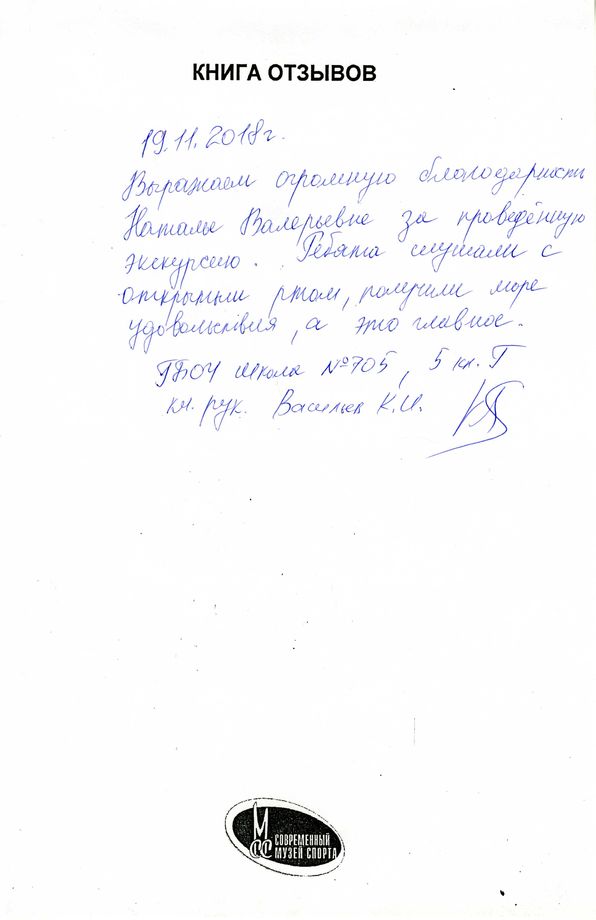 КНИГА ОТЗЫВОВ
19.11.2018г.
Выражаем огромную благодарность
Наталье Валерьевне за проведённую
экскурсию. Ребята слушали с
открытым ртом, получили море
удовольствия, а это главное.
ГБОУ школа №705, 5 кл. Г
кл. рук. Васильев К.И.
М
СС СОВРЕМЕННЫЙ
МУЗЕЙ СПОРТА